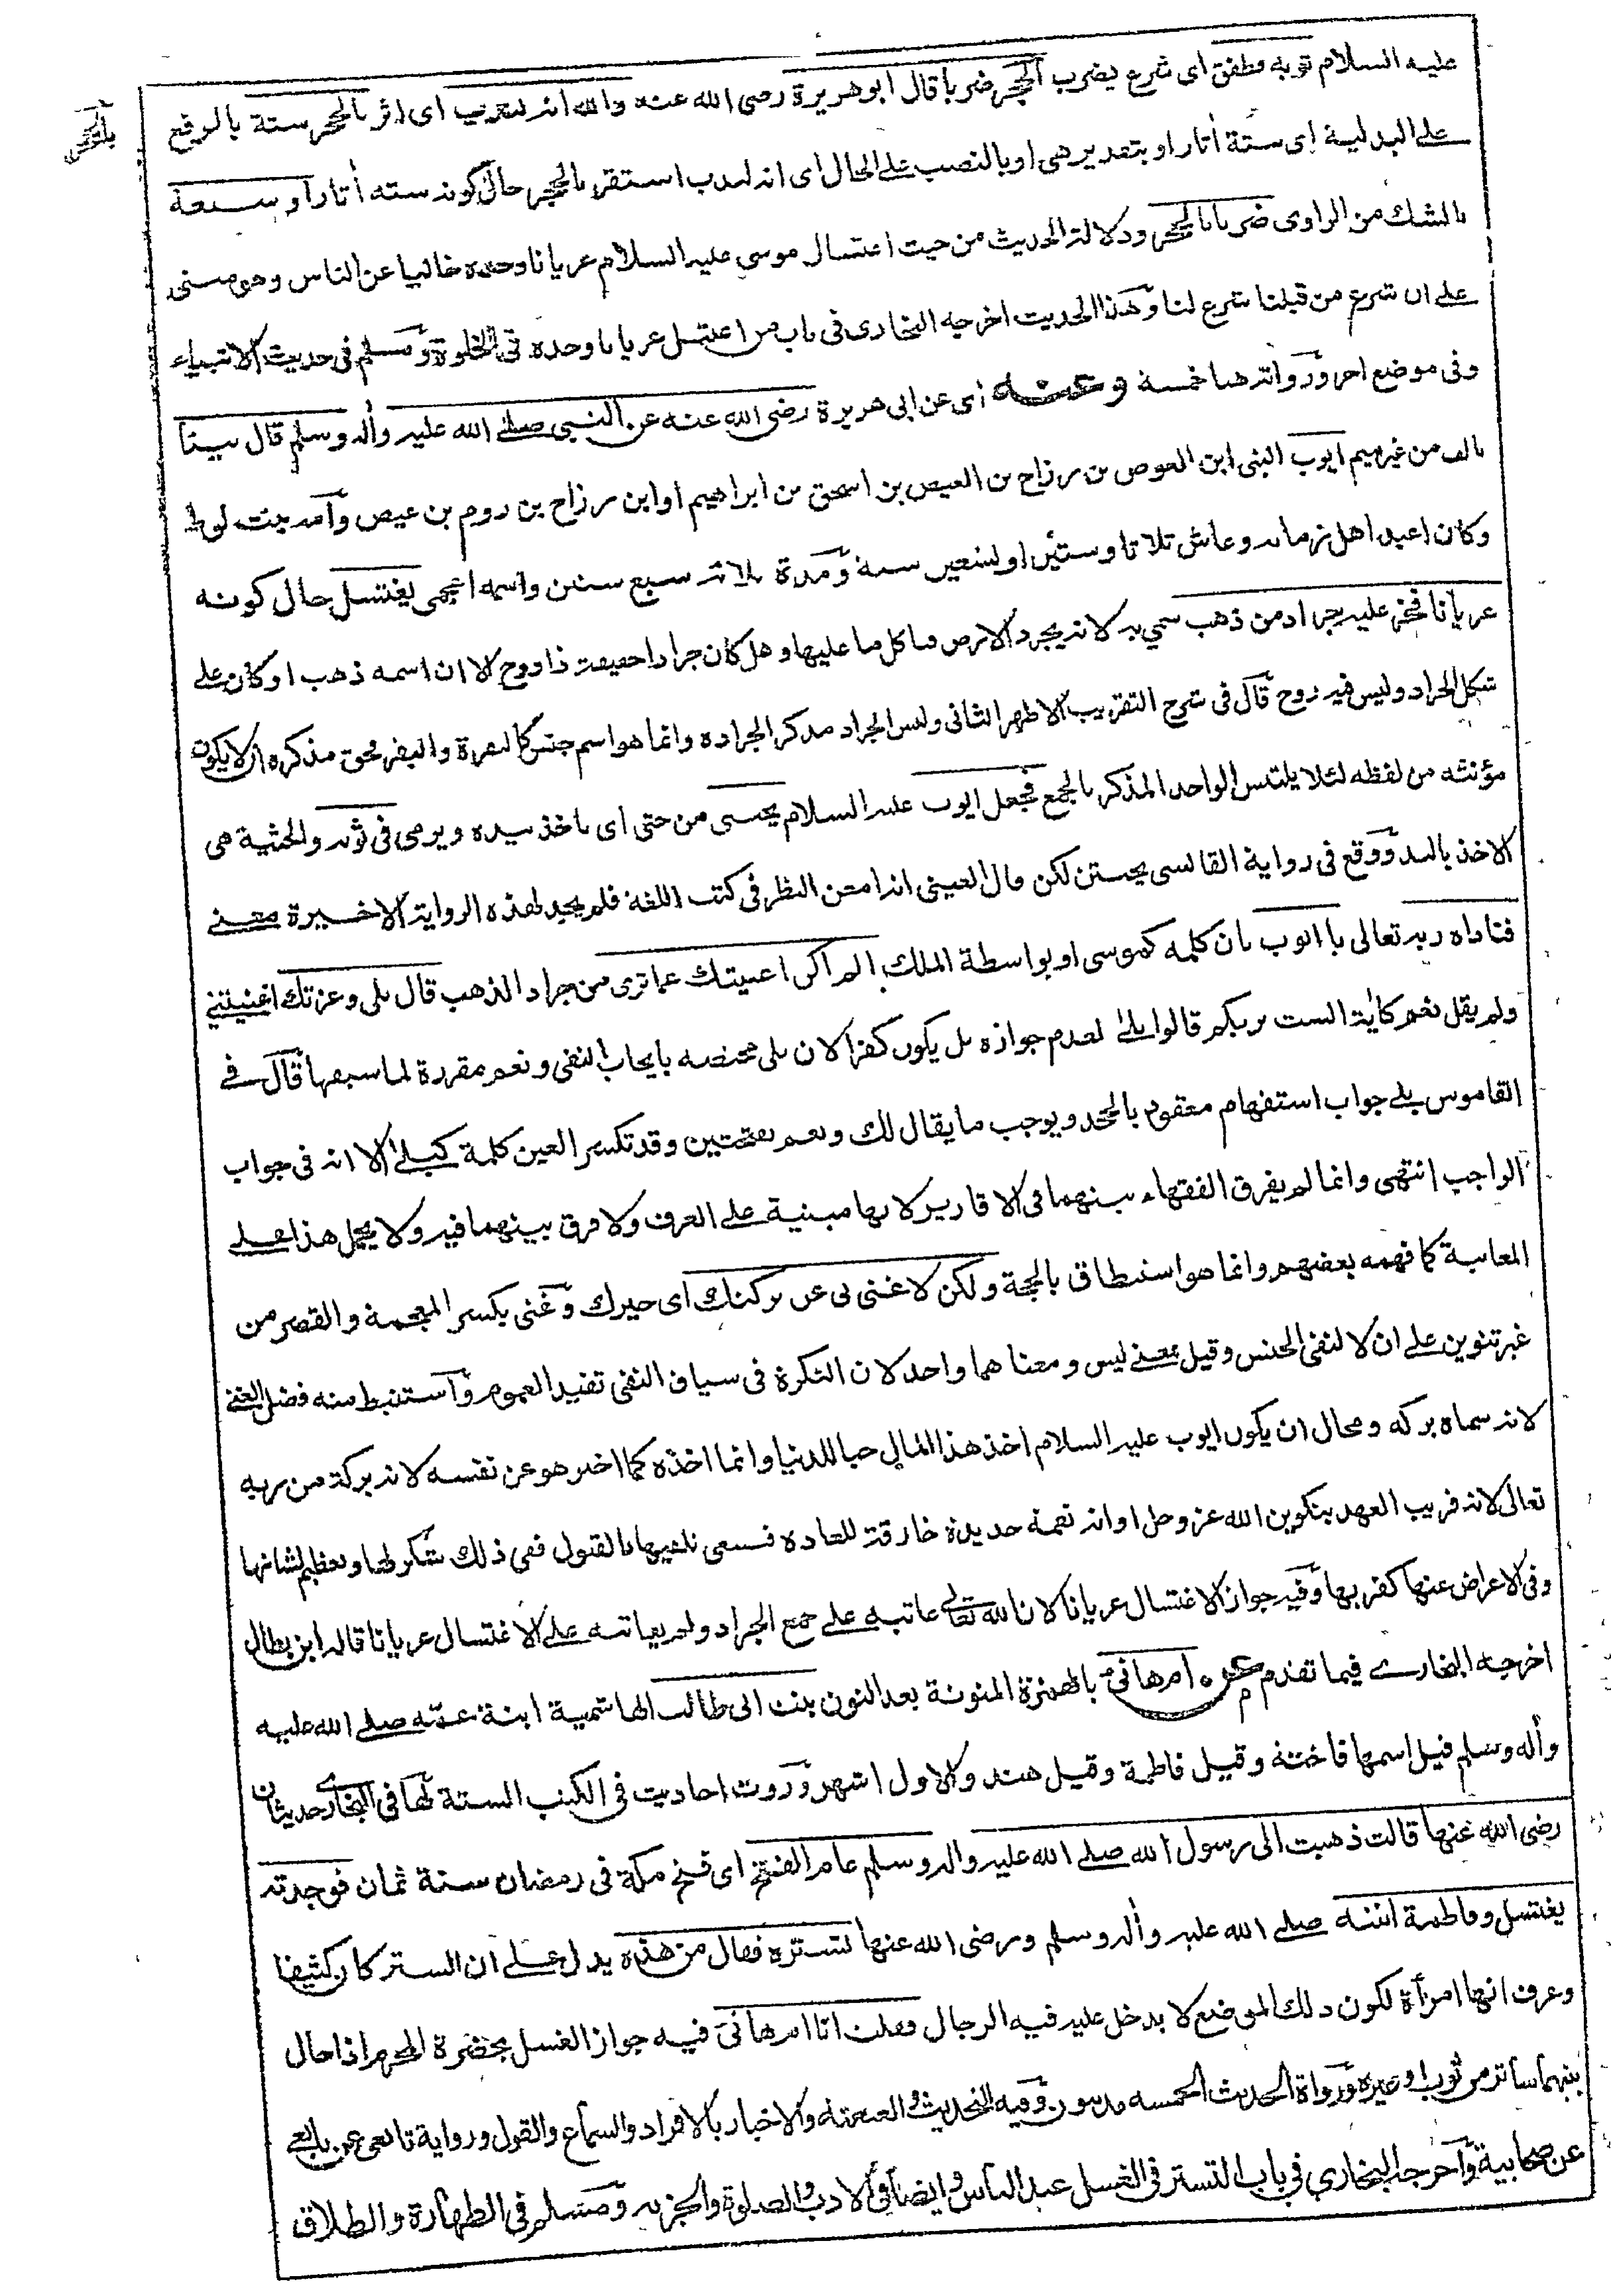 عليه السلام ثوبه وطفق اى شرع يضرب الحجر ضربا قال ابو هريرة رضى الله عنه والله انه لندب اى اثر بالحجر ستة بالرفع
بالحجر
على البدلية اى ستة أثار او بتقدير هى او بالنصب على الحال اى انه لندب استقر بالحجر حال كونه ستة أثار او سبعة
بالشك من الراوى ضربا بالحجر ودلالة الحديث من حيث اغتسال موسى عليه السلام عريانا وحده خاليا عن الناس وهو مبنى
على ان شرع من قبلنا شرع لنا وهذا الحديث اخرجه البخارى فى باب من اغتسل عريانا وحده فى الخلوة ومسلم فى حديث الانبياء
وفى موضع اخر ورواته هنا خمسة وعنه اى عن ابى هريرة رضى الله عنه عن النبى صلے الله عليه وأله وسلم قال بينا
بالف من غير ميم ايوب النبى ابن العوص بن رزاح بن العيص بن اسحق بن ابراهيم او ابن رزاح بن روم بن عيص وأمه بنت لوط
وكان اعبد اهل زمانه وعاش ثلاثا وستين او تسعين سنة ومدة بلائه سبع سنين واسمه اعجمى يغتسل حال كونه
عريانا فخر عليه جراد من ذهب سمي به لانه يجرد الارض فياكل ما عليها وهل كان جرادا حقيقة ذا روح الا ان اسمه ذهب او كان على
شكل الجراد وليس فيه روح قال فى شرح التقريب الاظهر الثانى وليس الجراد مذكر الجرادة وانما هو اسم جنس كالبقرة والبقر فحق مذكره ان لا يكون
مؤنثه من لفظه لئلا يلتبس الواحد المذكر بالجمع فجعل ايوب عليه السلام يحتثى من حثى اى ياخذ بيده ويرمى فى ثوبه والحثية هى
الاخذ باليد ووقع فى رواية القابسى يحتثن لكن قال العينى انه امعن النظر فى كتب اللغة فلم يجد لهذه الرواية الاخيرة معنے
فناداه ربه تعالى يا ايوب بان كلمه كموسى او بواسطة الملك الم اكن اغنيتك عما ترى من جراد الذهب قال بلى وعزتك اغنيتني
ولم يقل نعم كأية الست بربكم قالوا بلے لعدم جوازه بل يكون كفرا لان بلى مختصه بايجاب النفى ونعم مقررة لما سبقها قال فے
القاموس بلے جواب استفهام معقود بالجحد ويوجب ما يقال لك ونعم بفتحتين وقد تكسر العين كلمة كبلے الا انه فى جواب
الواجب انتهى وانما لم يفرق الفقهاء بينهما فى الاقارير لانها مبنية على العرف ولا فرق بينهما فيه ولا يحمل هذا علے
المعاتبة كما فهمه بعضهم وانما هو استنطاق بالحجة ولكن لا غنى بى عن بركتك اى خيرك وغنى بكسر المعجمة والقصر من
غير تنوين على ان لا لنفى الجنس وقيل بمعنے ليس ومعناهما واحد لان النكرة فى سياق النفى تفيد العموم وأستنبط منه فضل الغنے
لانه سماه بركة ومحال ان يكون ايوب عليه السلام اخذ هذا المال حبا للدنيا وانما اخذه كما اخبر هو عن نفسه لانه بركة من ربه
تعالى لانه قريب العهد بتكوين الله عز وجل او انه نعمة جديدة خارقة للعادة فينبغى تلقيها بالقبول ففى ذلك شكر لها وتعظيم لشانها
وفى الاعراض عنها كفر بها وفيه جواز الاغتسال عريانا لان الله تعالى عاتبه على جمع الجراد ولم يعاتبه على الاغتسال عريانا قاله ابن بطال
اخرجه البخارے فيما تقدم عن ام هانئ بالهمزة المنونة بعد النون بنت ابى طالب الهاشمية ابنة عمه صلے الله عليه
وأله وسلم قيل اسمها فاختة وقيل فاطمة وقيل هند والاول اشهر وروت احاديث فى الكتب الستة لها فى البخارے حديثان
رضى الله عنها قالت ذهبت الى رسول الله صلے الله عليه واله وسلم عام الفتح اى فتح مكة فى رمضان سنة ثمان فوجدته
يغتسل وفاطمة ابنته صلے الله عليه وأله وسلم ورضى الله عنها تستره فقال من هذه يدل على ان الستر كان كثيفا
وعرف انها امرأة لكون ذلك الموضع لا يدخل عليه فيه الرجال فقلت انا ام هانئ فيه جواز الغسل بحضرة المحرم اذا حال
بينهما ساتر من ثوب او غيره ورواة الحديث الخمسة مدنيون وفيه التحديث والعنعنة والاخبار بالافراد والسماع والقول ورواية تابعى عن تابعے
عن صحابية وأخرجه البخاري في باب التستر فى الغسل عند الناس وايضا فى الادب والصلوة والجزيه ومسلم فى الطهارة والطلاق